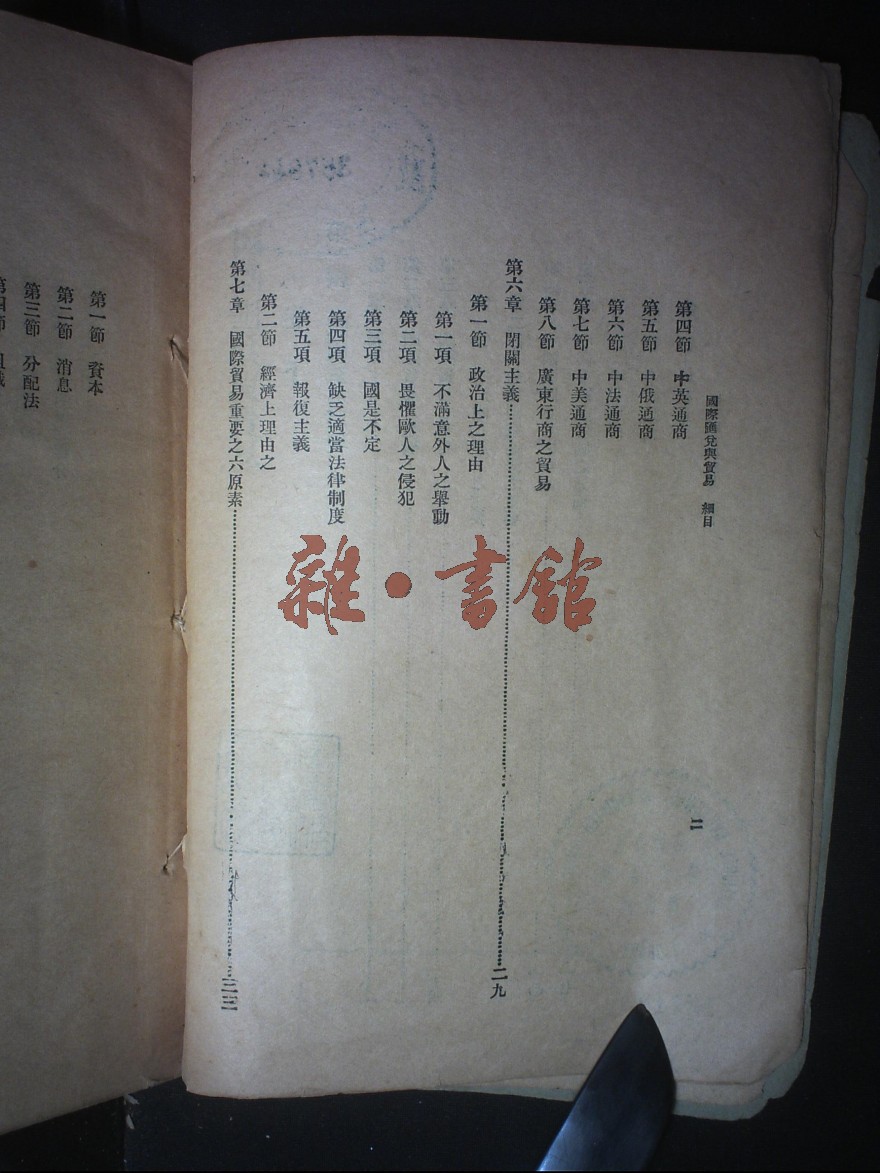 國際匯兌與貿易 細目
二
第四節 中英通商
第五節 中俄通商
第六節 中法通商
第七節 中美通商
第八節 廣東行商之貿易
第六章 閉關主義……二九
第一節 政治上之理由
第一項 不滿意外人之舉動
第二項 畏懼歐人之侵犯
第三項 國是不定
第四項 缺乏適當法律制度
第五項 報復主義
第二節 經濟上理由之
第七章 國際貿易重要之六原素……三三
第一節 資本
第二節 消息
第三節 分配法
雜·書館